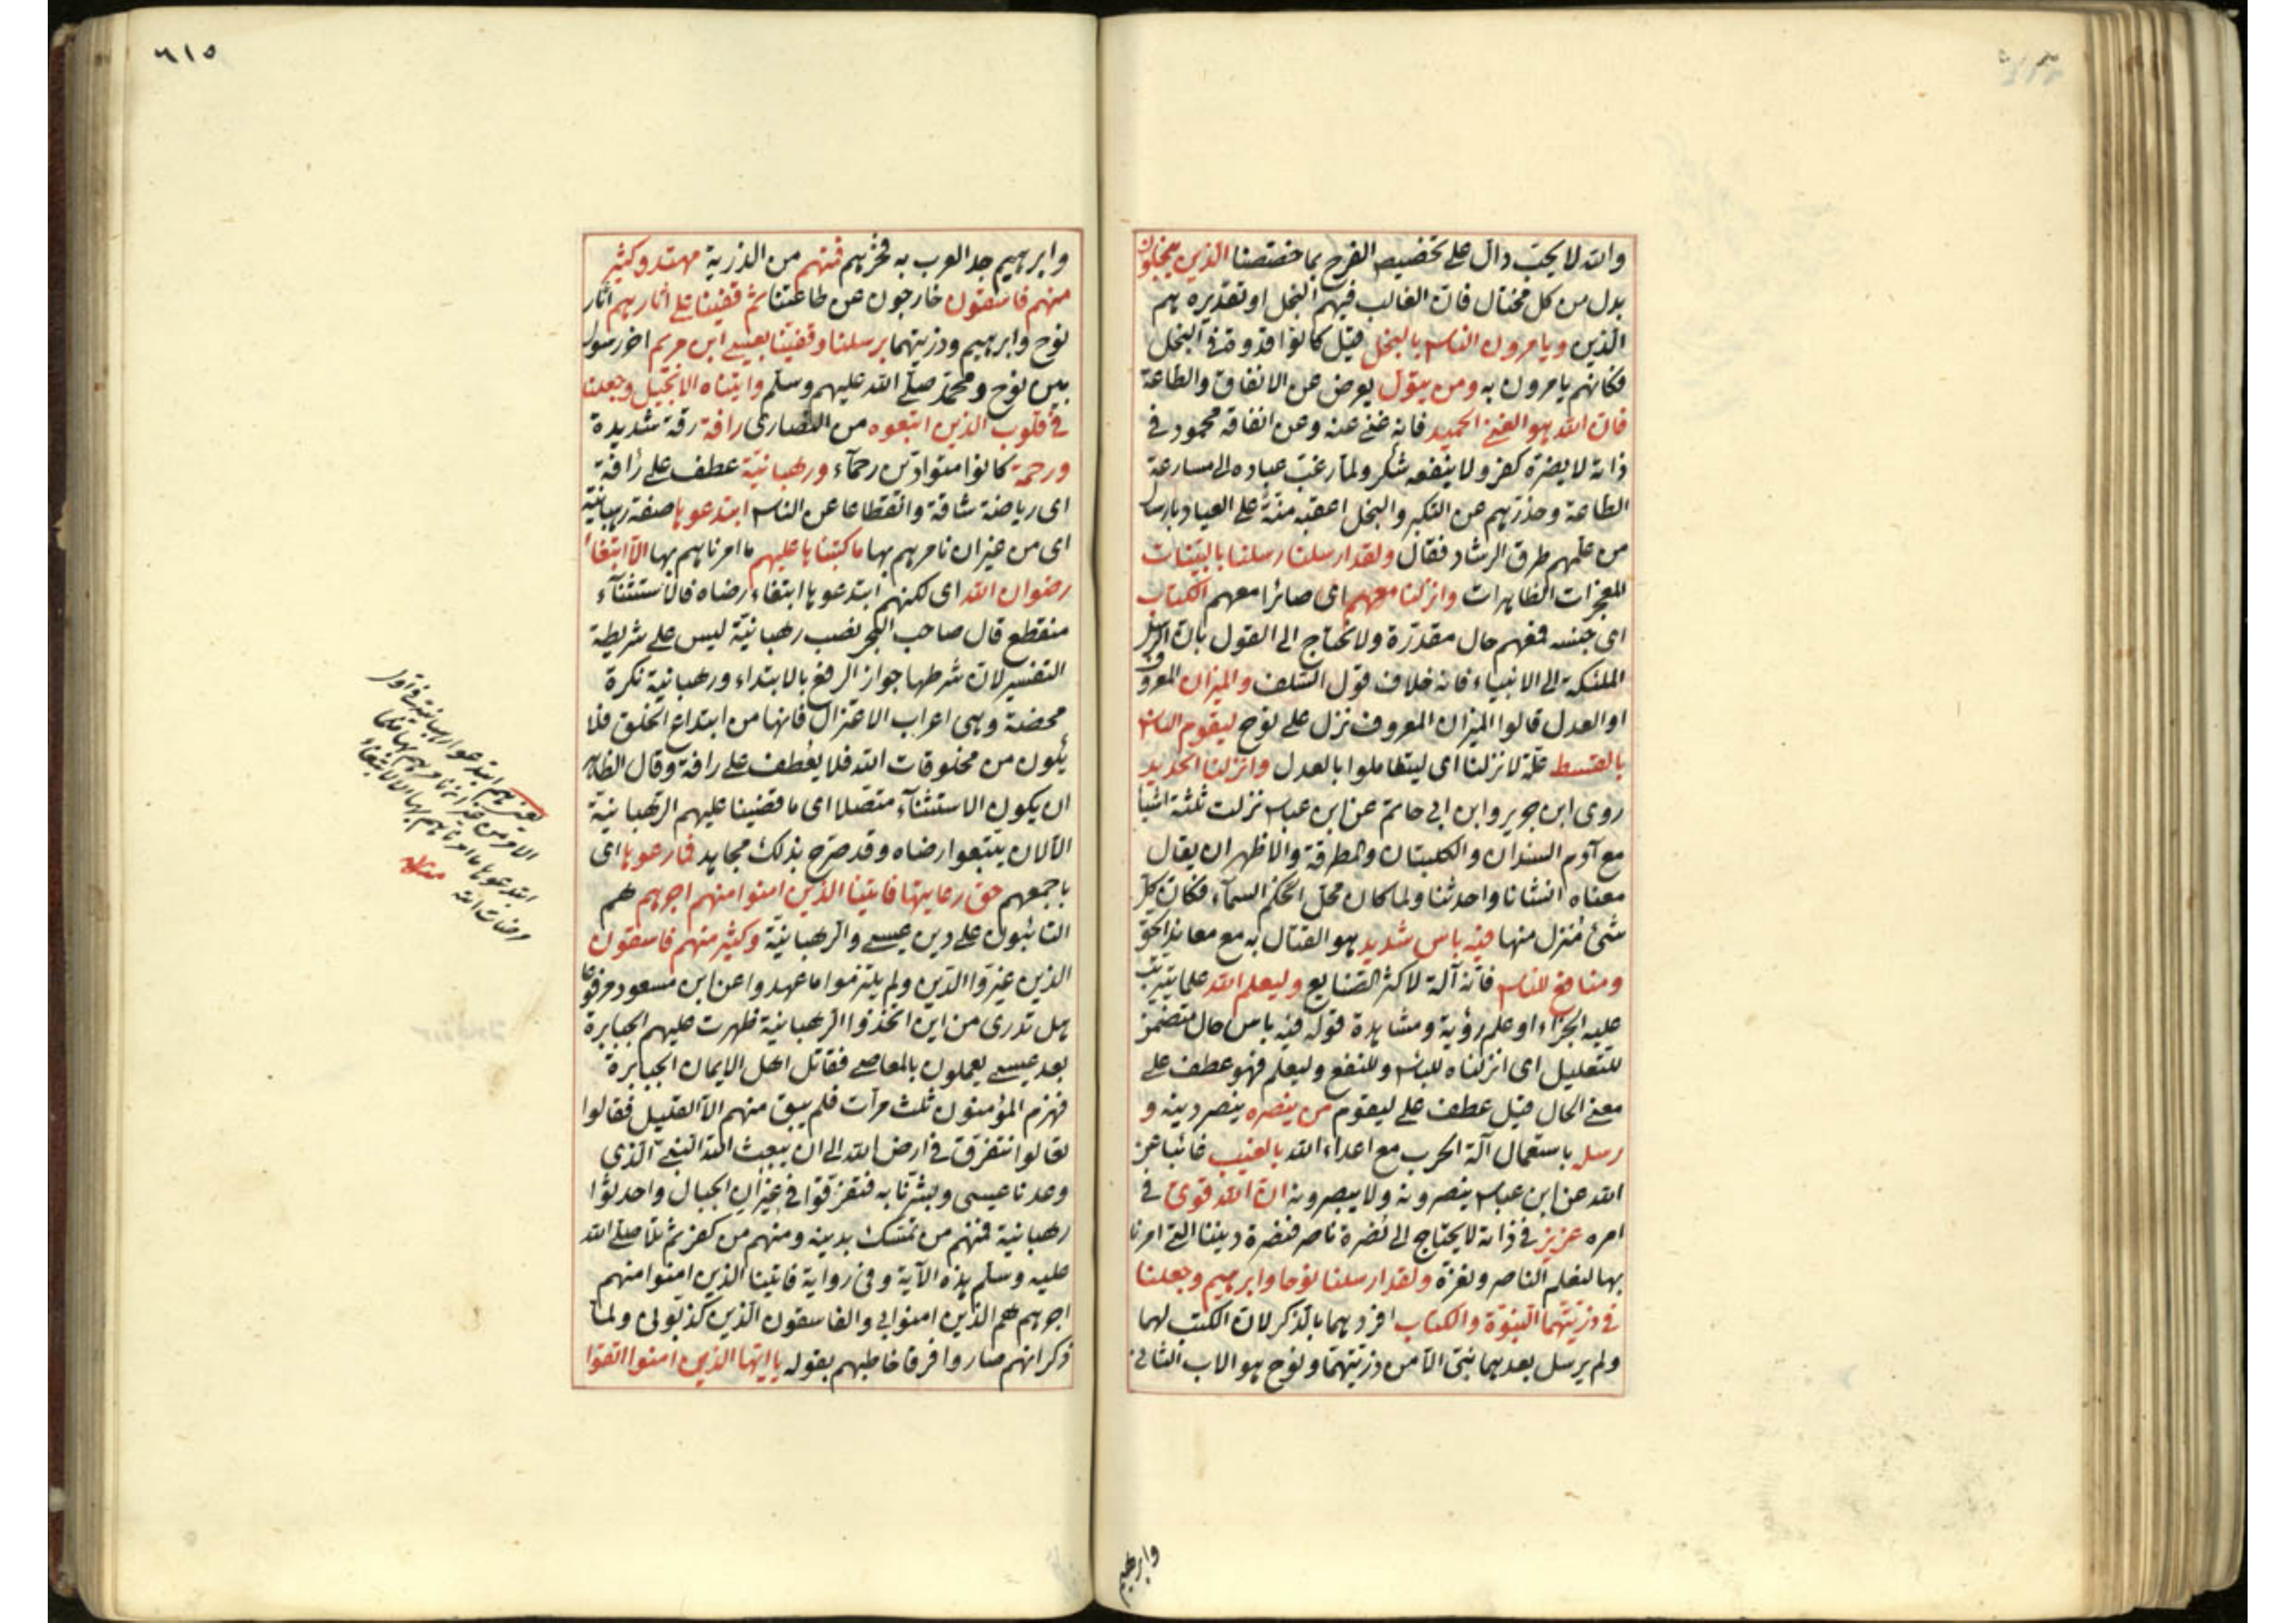 والله لا يحب دال على تخصيص الفرح بما خصصنا الذين يبخلون
بدل من كل مختال فان الغالب فيهم البخل او تقديره هم
الذين ويامرون الناس بالبخل قيل كانوا قدوة في البخل
فكانهم يامرون به ومن يتول يعرض عن الانفاق والطاعة
فان الله هو الغني الحميد فانه غني عنه وعن انفاقه محمود في
ذاته لا يضره كفر ولا ينفعه شكر ولما رغب عباده الى مسارعة
الطاعة وحذرهم عن التكبر والبخل اعقبه منة على العباد بارسال
من علمهم طرق الرشاد فقال ولقد ارسلنا رسلنا بالبينات
المعجزات الظاهرات وانزلنا معهم اى صائرا معهم الكتاب
اى جنسه فمعهم حال مقدرة ولا نحتاج الى القول بان الرسل
الملئكة الى الانبياء فانه خلاف قول السلف والميزان المعروف
او العدل قالوا الميزان المعروف نزل على نوح ليقوم الناس
بالقسط علة لانزلنا اى ليتعاملوا بالعدل وانزلنا الحديد
روى ابن جرير وابن ابي حاتم عن ابن عباس نزلت ثلثة اشيا
مع آدم السندان والكلبتان والمطرقة والاظهر ان يقال
معناه انشانا واحدثنا ولما كان محل الحكم السماء فكان كل
شئ منزل منها فيه باس شديد هو القتال به مع معاند الحق
ومنافع للناس فانه آلة لاكثر الصنايع وليعلم الله علما يترتب
عليه الجزاء او علم رؤية ومشاهدة قوله فيه باس حال متضمن
للتعليل اى انزلناه للباس وللنفع وليعلم فهو عطف على
معنى الحال قيل عطف على ليقوم من ينصره ينصر دينه و
رسله باستعمال آلة الحرب مع اعداء الله بالغيب غائبا عن
الله عن ابن عباس ينصرونه ولا يبصرونه ان الله قوى في
امره عزيز في ذاته لا يحتاج الى نصرة ناصر فنصرة ديننا التي امرنا
بها لنعلم الناصر ونعزه ولقد ارسلنا نوحا وابرهيم وجعلنا
في ذريتهما النبوة والكتاب افردهما بالذكر لان الكتب لهما
ولم يرسل بعدهما نبي الا من ذريتهما ونوح هو الاب الثاني
وابرهيم
٦١٥
وابرهيم جد العرب به فخرهم فمنهم من الذرية مهتد وكثير
منهم فاسقون خارجون عن طاعتنا ثم قفينا على اثارهم اثار
نوح وابرهيم وذريتهما برسلنا وقفينا بعيسى ابن مريم اخر رسول
بين نوح ومحمد صلى الله عليهم وسلم واتيناه الانجيل وجعلنا
في قلوب الذين اتبعوه من النصارى رافة رقة شديدة
ورحمة كانوا متوادين رحماء ورهبانية عطف على رافة
اى رياضة شاقة وانقطاعا عن الناس ابتدعوها صفة رهبانية
اى من غير ان نامرهم بها ما كتبناها عليهم ما امرناهم بها الا ابتغاء
رضوان الله اى لكنهم ابتدعوها ابتغاء رضاه فالاستثناء
منقطع قال صاحب البحر نصب رهبانية ليس على شريطة
التفسير لان شرطها جواز الرفع بالابتداء ورهبانية نكرة
محضة وهى اعراب الاعتزال فانها من ابتداع الخلق فلا
يكون من مخلوقات الله فلا يعطف على رافة وقال الظاهر
ان يكون الاستثناء متصلا اى ما قضينا عليهم الرهبانية
الا لان يبتغوا رضاه وقد صرح بذلك مجاهد فما رعوها اى
باجمعهم حق رعايتها فاتينا الذين امنوا منهم اجرهم هم
التائبون على دين عيسى والرهبانية وكثير منهم فاسقون
الذين غيروا الدين ولم يلتزموا ما عهدوا عن ابن مسعود مرفوعا
هل تدرى من اين اتخذوا الرهبانية ظهرت عليهم الجبابرة
بعد عيسى يعملون بالمعاصى فقاتل اهل الايمان الجبابرة
فهزم المؤمنون ثلث مرات فلم يبق منهم الا القليل فقالوا
تعالوا نتفرق في ارض الله الى ان يبعث الله النبي الذى
وعدنا عيسى وبشرنا به فتفرقوا في غيران الجبال واحدثوا
رهبانية فمنهم من تمسك بدينه ومنهم من كفر ثم تلا صلى الله
عليه وسلم هذه الآية وفى رواية فاتينا الذين امنوا منهم
اجرهم هم الذين امنوا بي والفاسقون الذين كذبونى ولما
ذكر انهم صاروا فرقا خاطبهم بقوله يا ايها الذين امنوا اتقوا
يعنى هم ابتدعوا رهبانية في اول
الامر من غير ان نامرهم بها فلما
ابتدعوها ما امرناهم بها الا لابتغاء
مرضات الله منه